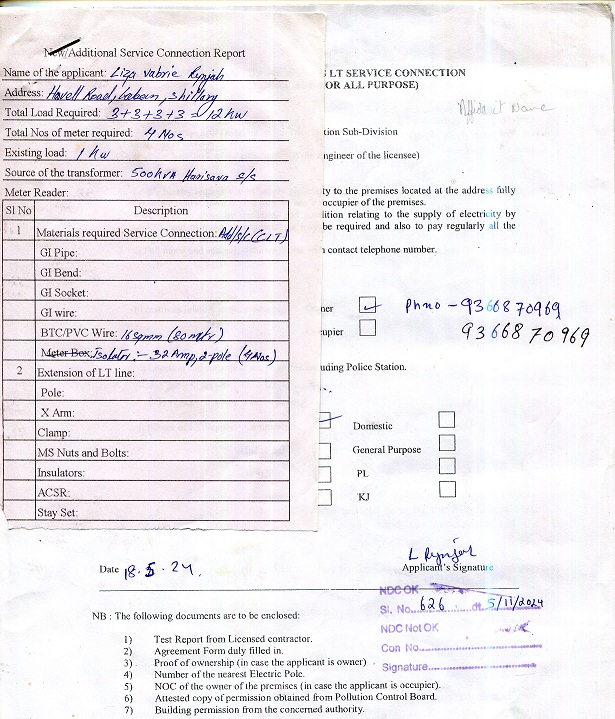 New/Additional Service Connection Report
Name of the applicant: Liza Valrie Rynjah
Address: Howell Road, Laban, Shillong
Total Load Required: 3+3+3+3 = 12 kw
Total Nos of meter required: 4 Nos
Existing load: 1 kw
Source of the transformer: 500kVA Harisava s/s
Meter Reader:
Sl No Description
1 Materials required Service Connection: Add/s/c (CLT)
GI Pipe:
GI Bend:
GI Socket:
GI wire:
BTC/PVC Wire: 16 sqmm (80 mtr)
Meter Box: Isolator :- 32 Amp, 2-pole (4 Nos)
2 Extension of LT line:
Pole:
X Arm:
Clamp:
MS Nuts and Bolts:
Insulators:
ACSR:
Stay Set:
LT SERVICE CONNECTION
OR ALL PURPOSE)
tion Sub-Division
ngineer of the licensee)
ty to the premises located at the address fully
occupier of the premises.
lition relating to the supply of electricity by
be required and also to pay regularly all the
contact telephone number.
ner Ph no - 9366870969
upier 9366870969
uding Police Station.
Domestic
General Purpose
PL
KJ
L Rynjah
Date 18.5.24. Applicant's Signature
NDC OK
Sl. No. 626 dt. 5/11/2024
NDC Not OK
Con No.
Signature
NB : The following documents are to be enclosed:
1) Test Report from Licensed contractor.
2) Agreement Form duly filled in.
3) Proof of ownership (in case the applicant is owner)
4) Number of the nearest Electric Pole.
5) NOC of the owner of the premises (in case the applicant is occupier).
6) Attested copy of permission obtained from Pollution Control Board.
7) Building permission from the concerned authority.